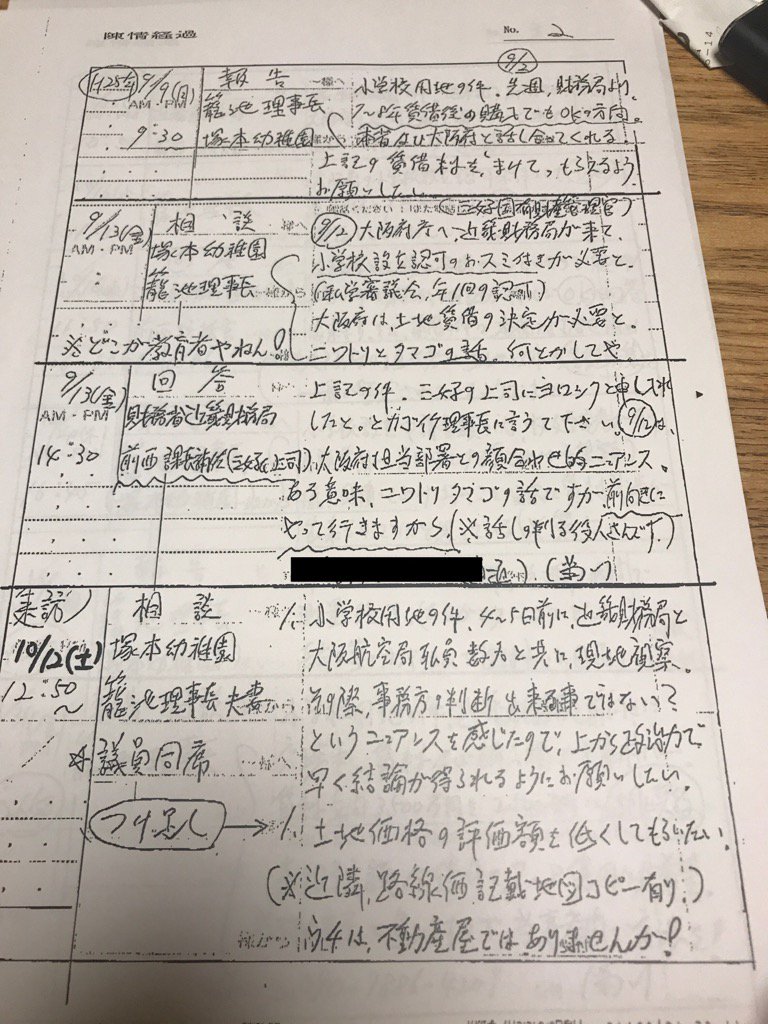 陳情経過
No. 2
H25年 9/9(月)
AM・PM
9:30
報告
籠池理事長
塚本幼稚園
9/2
小学校用地の件、先週、財務局より、
7〜8年賃借後の購入でもOKの方向。
本省及び大阪府と話し合ってくれる。
上記の賃借料を"まけて"もらえるよう
お願いしたい。
9/13(金)
AM・PM
相談
塚本幼稚園
籠池理事長
※どこが教育者やねん!
(三好国有財産管理官)
9/12 大阪府庁へ、近畿財務局が来て、
小学校設立認可のおスミ付きが必要と。
(私学審議会、年1回の認可)
大阪府は、土地賃借の決定が必要と。
ニワトリとタマゴの話。何とかしてや。
9/13(金)
AM・PM
14:30
回答
財務省近畿財務局
前西課長補佐(三好の上司)
上記の件、三好の上司にヨロシクと申し入れ
したと。とカゴイケ理事長に言うて下さい。9/12は、
大阪府担当部署との顔合わせ的ニュアンス。
ある意味、ニワトリタマゴの話ですが、前向きに
やって行きますから。(※話しの判る役人さんです。)
来訪
10/12(土)
12:50〜
相談
塚本幼稚園
籠池理事長夫妻
議員同席
つけ足し →
小学校用地の件、4〜5日前に、近畿財務局と
大阪航空局職員数名と共に、現地視察。
その際、事務方の判断出来る事ではない?
というニュアンスを感じたので、上から政治力で
早く結論が得られるようにお願いしたい。
土地価格の評価額を低くしてもらいたい。
(※近隣、路線価記載地図コピー有り。)
ウチは、不動産屋ではありませんか!